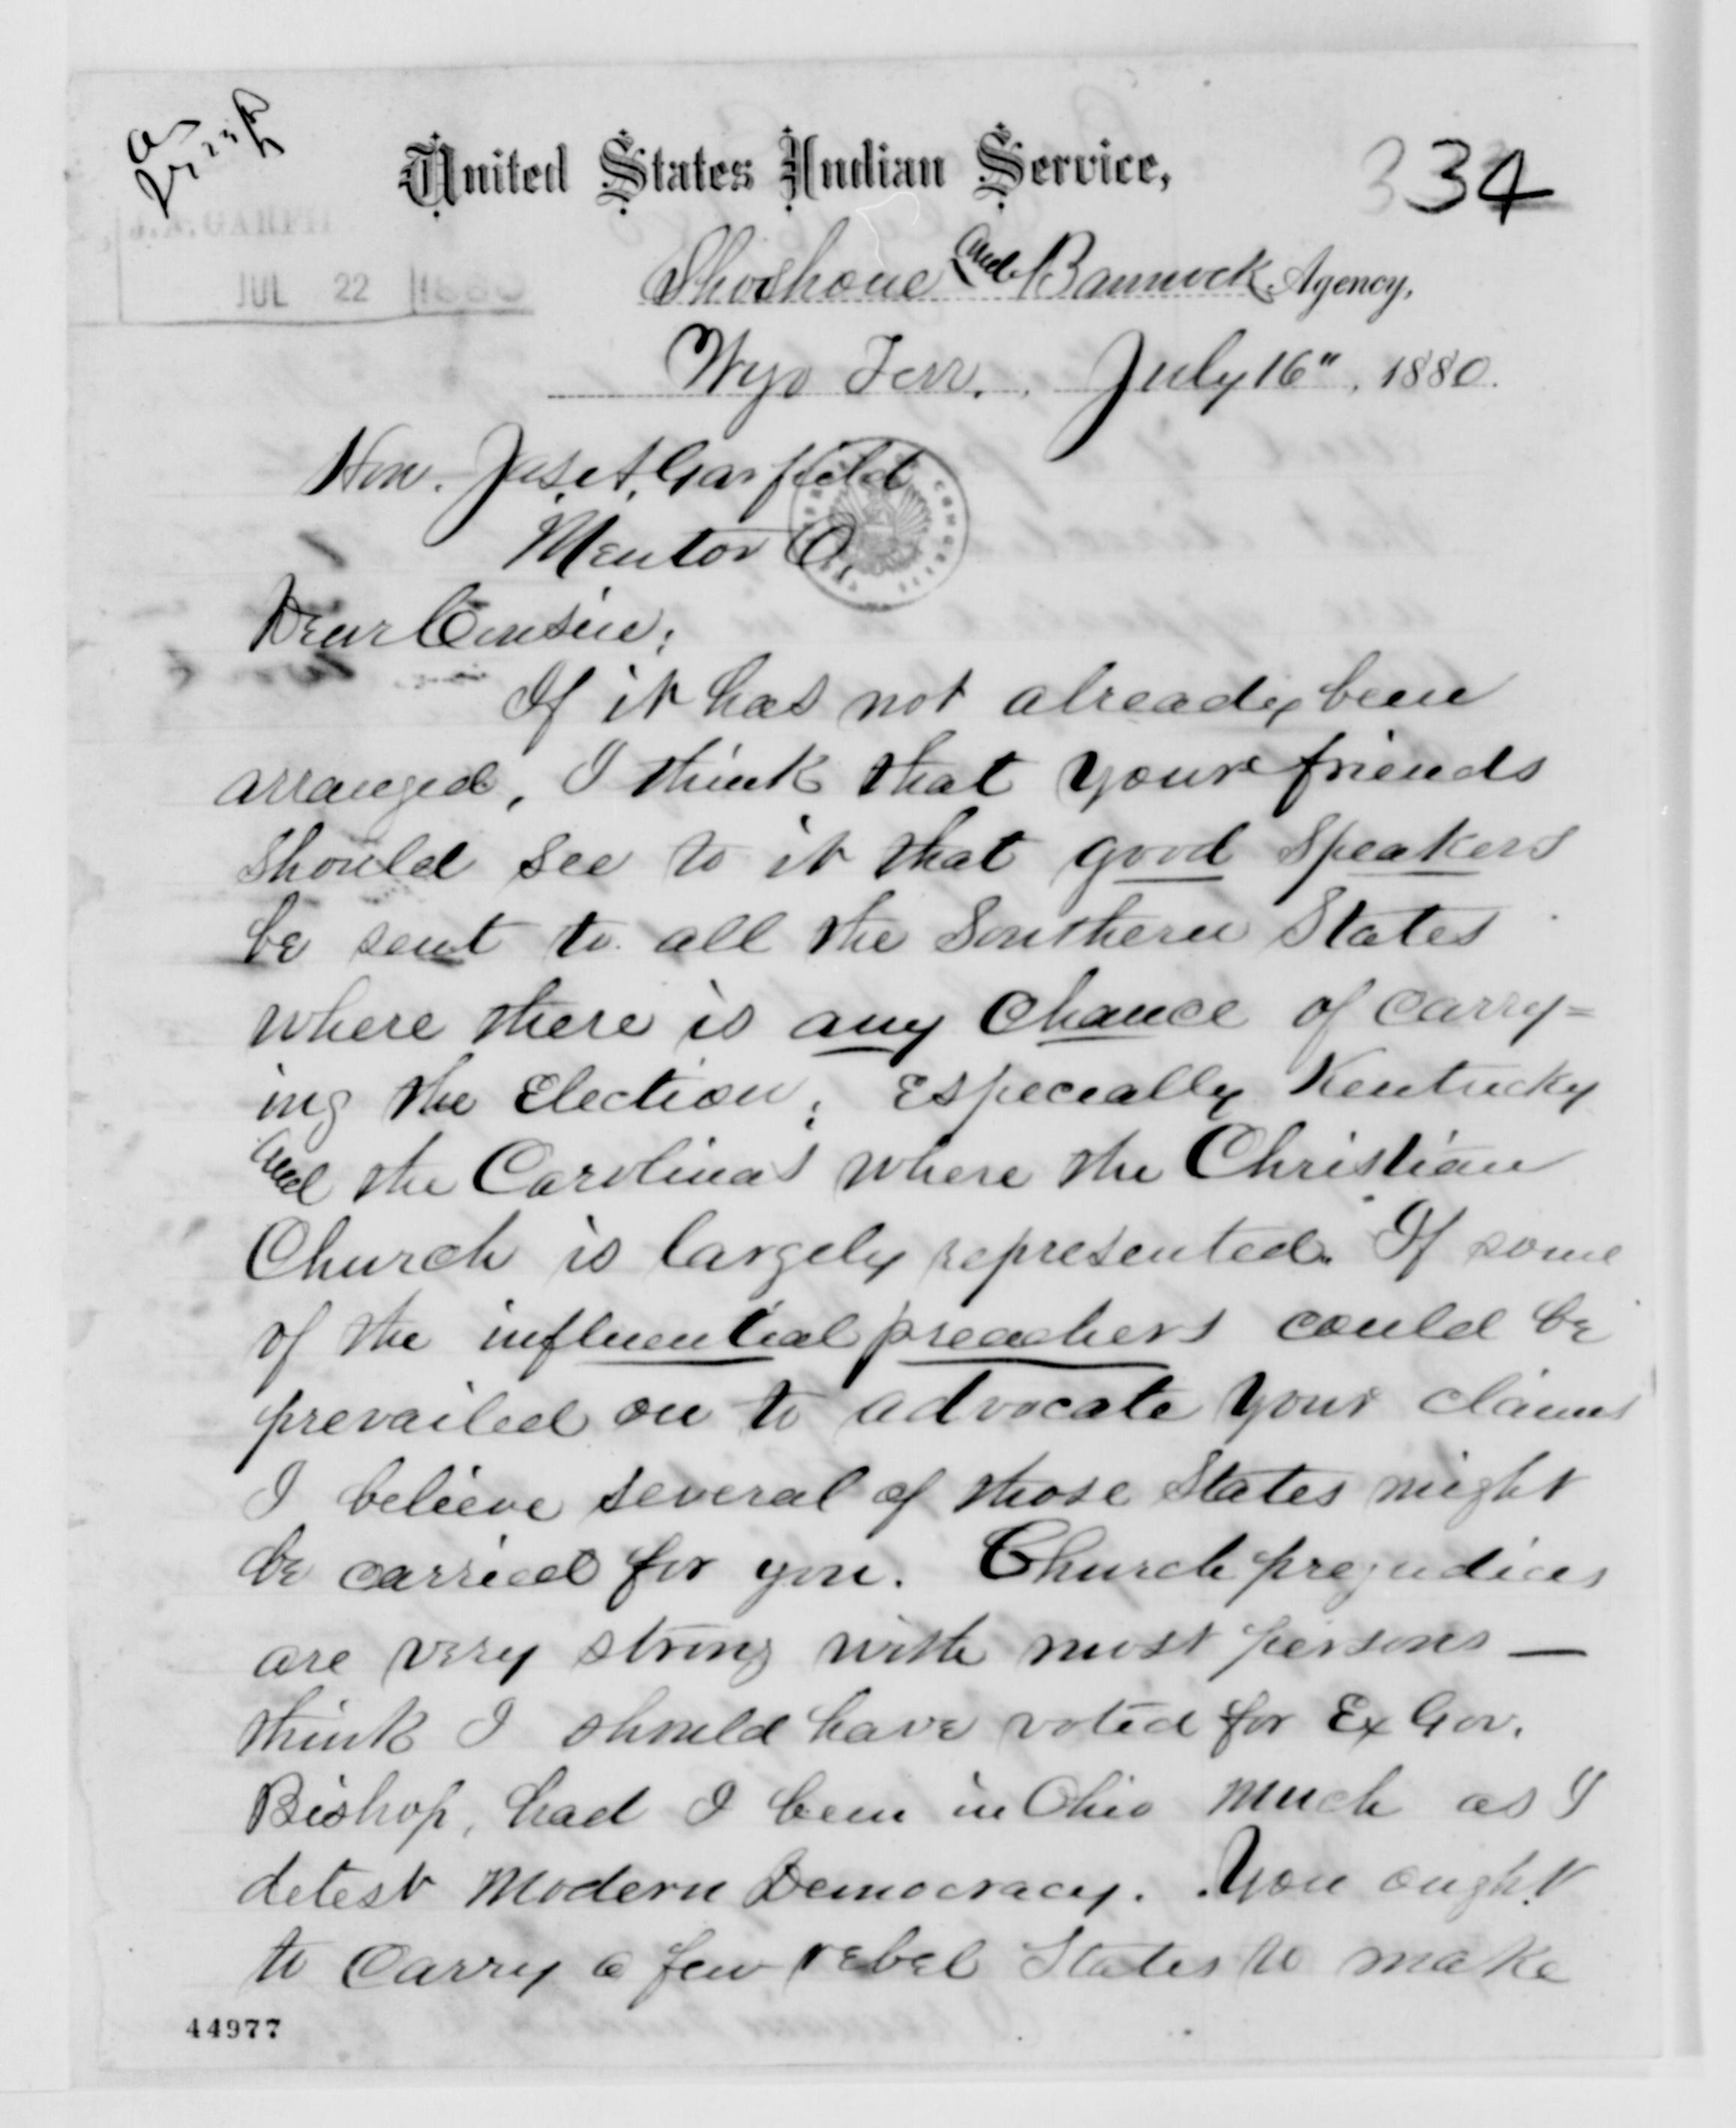 United States Indian Service,
334
J. A. GARFI
JUL 22 1880
Shoshone and Bannock Agency,
Wyo Terr., July 16", 1880.
Hon. Jas. A. Garfield
Mentor O,
Dear Cousin;
If it has not already been
arranged, I think that your friends
should see to it that good speakers
be sent to all the Southern States
where there is any chance of carry=
ing the Election; Especially Kentucky
and the Carolinas where the Christian
Church is largely represented. If some
of the influential preachers could be
prevailed on to advocate your claims
I believe several of those States might
be carried for you. Church prejudices
are very strong with most persons —
think I should have voted for Ex Gov.
Bishop, had I been in Ohio much as I
detest Modern Democracy. You ought
to carry a few rebel States to make
44977